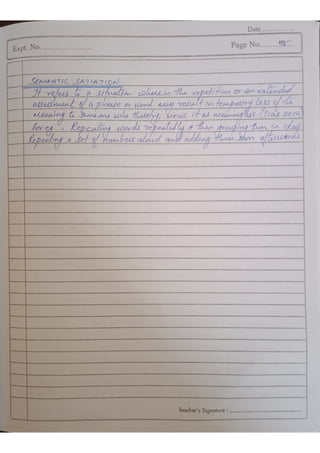 Date
Expt. No.
Page No. 45
SEMANTIC SATIATION
It refers to a situation wherein the repetition or an extended
assessment of a phrase or word may result in temporary loss of its
meaning to someone who thereby views it as meaningless (Das 2014)
For eg. Repeating words repeatedly & then grouping them in ideas
Repeating a set of numbers aloud and adding them soon afterwards
Teacher's Signature :